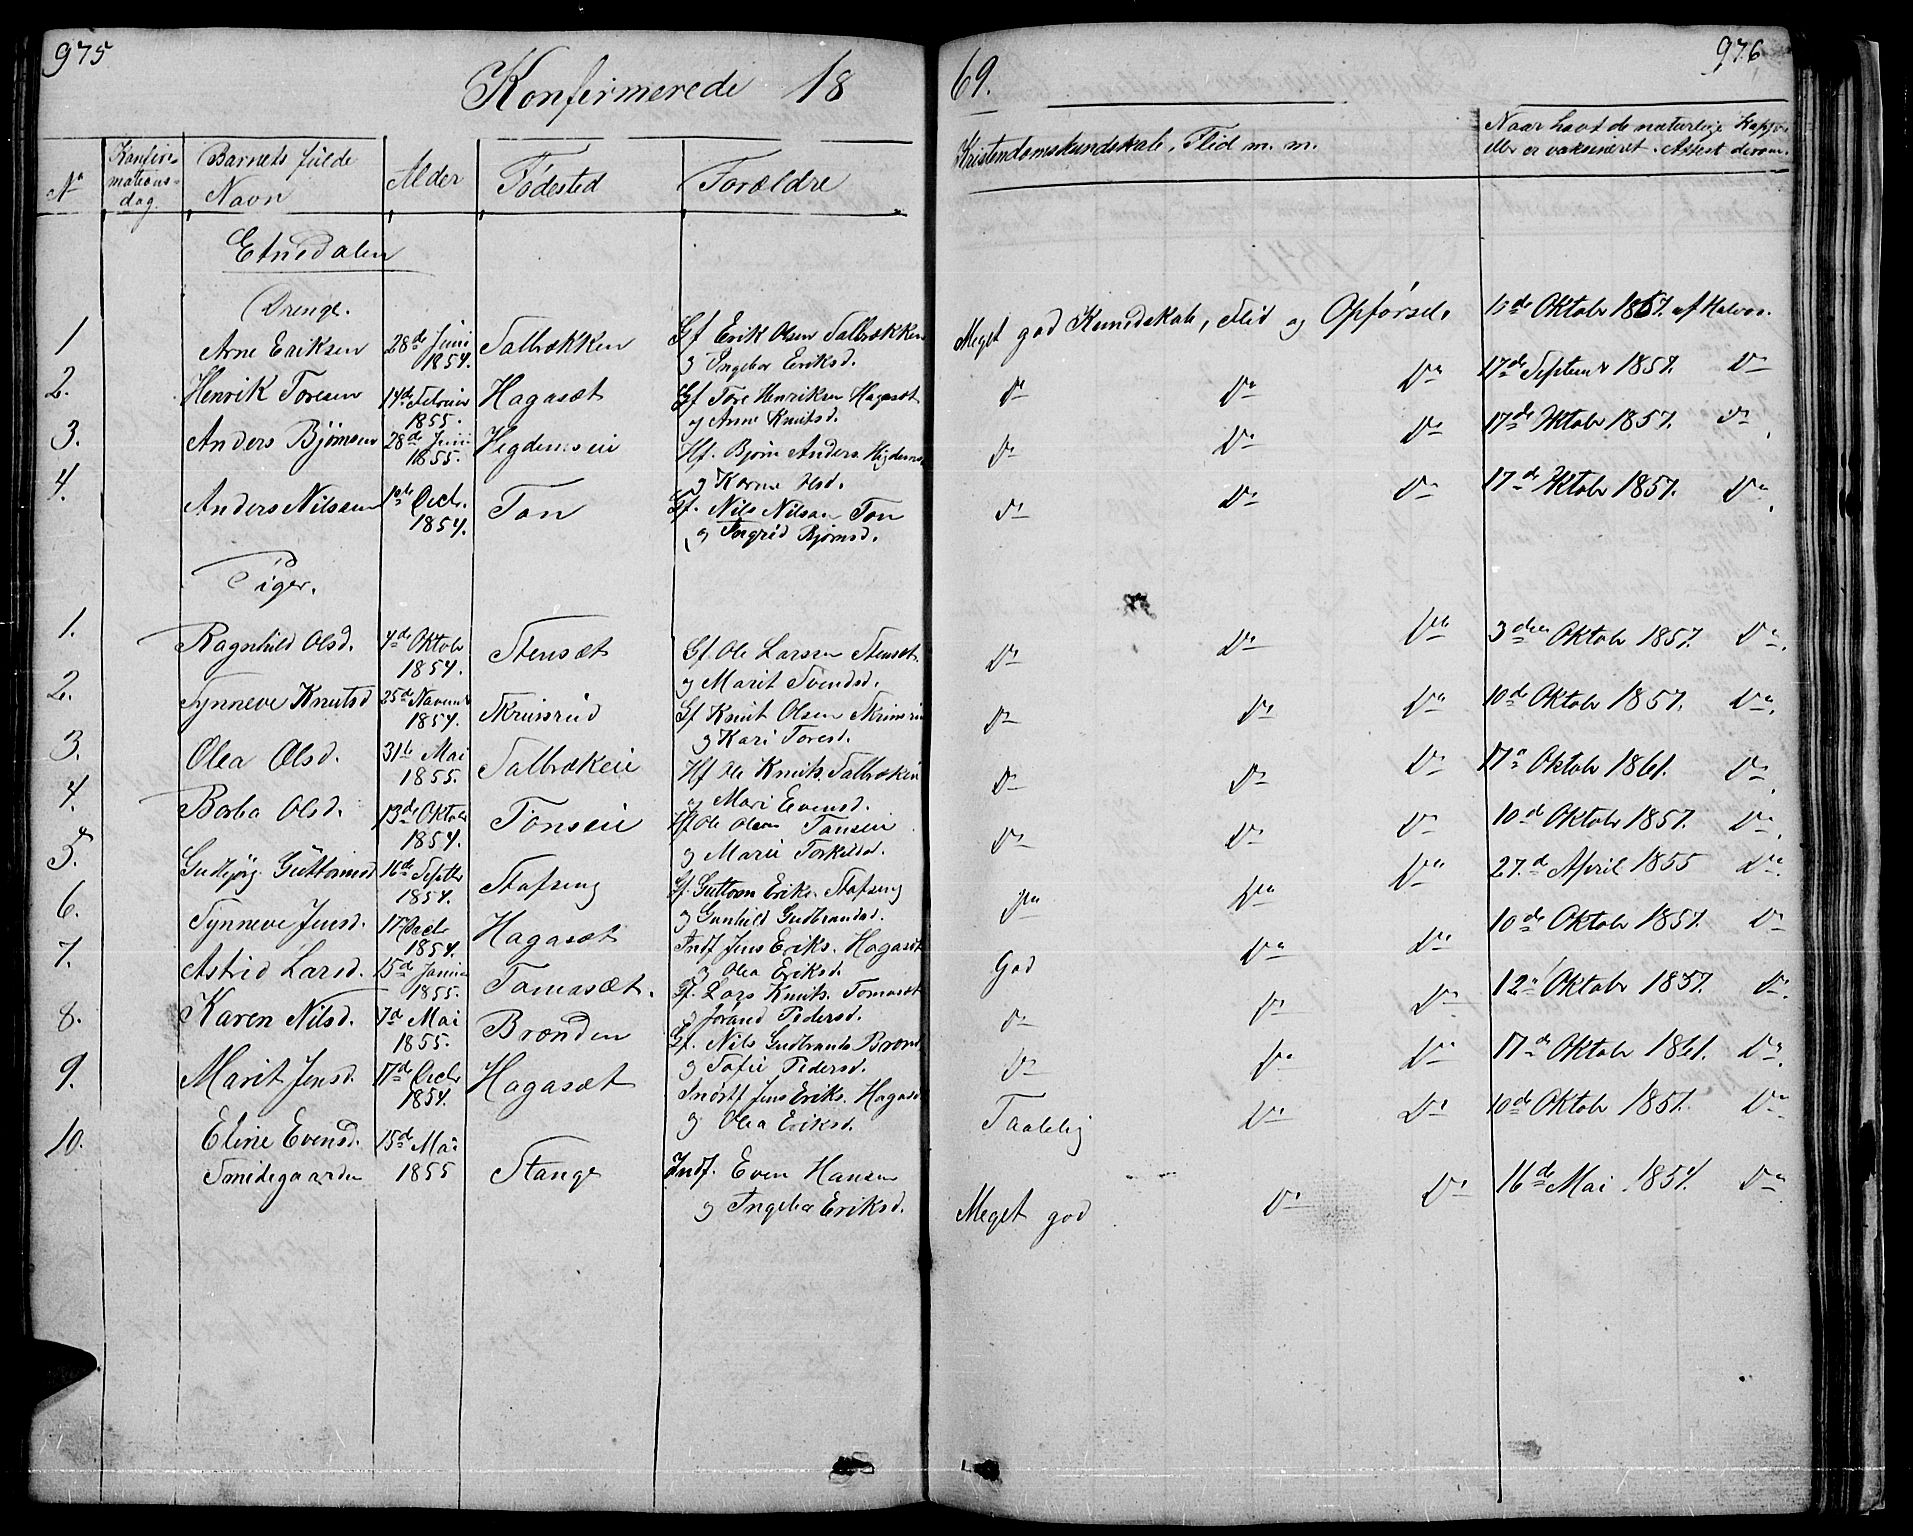 975
Konfirmerede 18
69.
976
No
Konfir-
mations-
dag.
Barnets fulde
Navn
Alder
Födested
Forældre
Kristendomskundskab, Flid m. m.
Naar havt de naturlige Kopper
eller er vaksineret. Attest derom.
Etnedalen
Drenge.
1 Arne Eriksen 28de Juni 1854. Salbrækken Gf Erik Olsen Salbrækken og Ingebor Eriksd. Meget god Kundskab, Flid og Opförsel. Oktobr 1857. af Halvor.
2. Henrik Toresen 14de Februar 1855. Hagasæt Gf Tore Henriksen Hagasæt og Anne Knutsd. Do Do Do 17de Septembr 1857. Do
3. Anders Bjørnsen 28de Juni 1855. Högdenseie Hf. Bjørn Anders. og Karen Olsd. Do Do Do 17de Oktobr 1857. Do
4. Anders Nilsen 1de Decbr. 1854. Ton Gf. Nils Nilsen Ton og Ingrid Bjørnsd. Do Do Do 17de Oktobr 1857. Do
Piger.
1. Ragnhild Olsd. 4de Oktobr 1854. Stensæt Gf. Ole Larsen Stensæt og Marit Svendsd. Do Do Do 3die Oktobr 1857. Do
2. Synneve Knutsd 25de Novembr 1854. Skrinsrud Gf Knut Olsen og Kari Toresd. Do Do Do 10de Oktobr 1857. Do
3. Olea Olsd. 31te Mai 1855. Salbrækeie Hf Ole Knuts. Salbrækeie og Mari Evensd. Do Do Do 17de Oktobr 1861. Do
4. Barbo Olsd. 13de Oktobr 1854. Tonseie Hf Ole Olsen Tonseie og Marie Torkildsd. Do Do Do 10de Oktobr 1857. Do
5. Gudbjörg Guttormsd 16de Septbr 1854. Stafseng Gf. Guttorm Eriks. Stafseng og Gunhild Gudbrandsd. Do Do Do 27de April 1855 Do
6. Synneve Jensd. 17 Decbr 1854. Hagasæt Indf Jens Eriks. Hagasæt og Olea Eriksd. God Do Do 10de Oktobr 1857. Do
7. Astrid Larsd. 15de Januar 1855. Tomasæt. Gf. Lars Knuts. Tomasæt og Jorand Pedersd. Do Do Do 12te Oktobr 1857. Do
8. Karen Nilsd. 7de Mai 1855. Brønden Gf. Nils Gudbrands. og Sofie Pedersd. Do Do Do 17de Oktobr 1861. Do
9. Marit Jensd. 17de Decbr 1854. Hagasæt Jens Eriks. Hagasæt og Olea Eriksd. Taalelig Do Do 10de Oktobr 1857. Do
10. Eline Evensd. Smidegaarden 15de Mai 1855 Stange Indf. Even Hansen og Ingebor Eriksd. Meget god Do Do 16de Mai 1857. Do